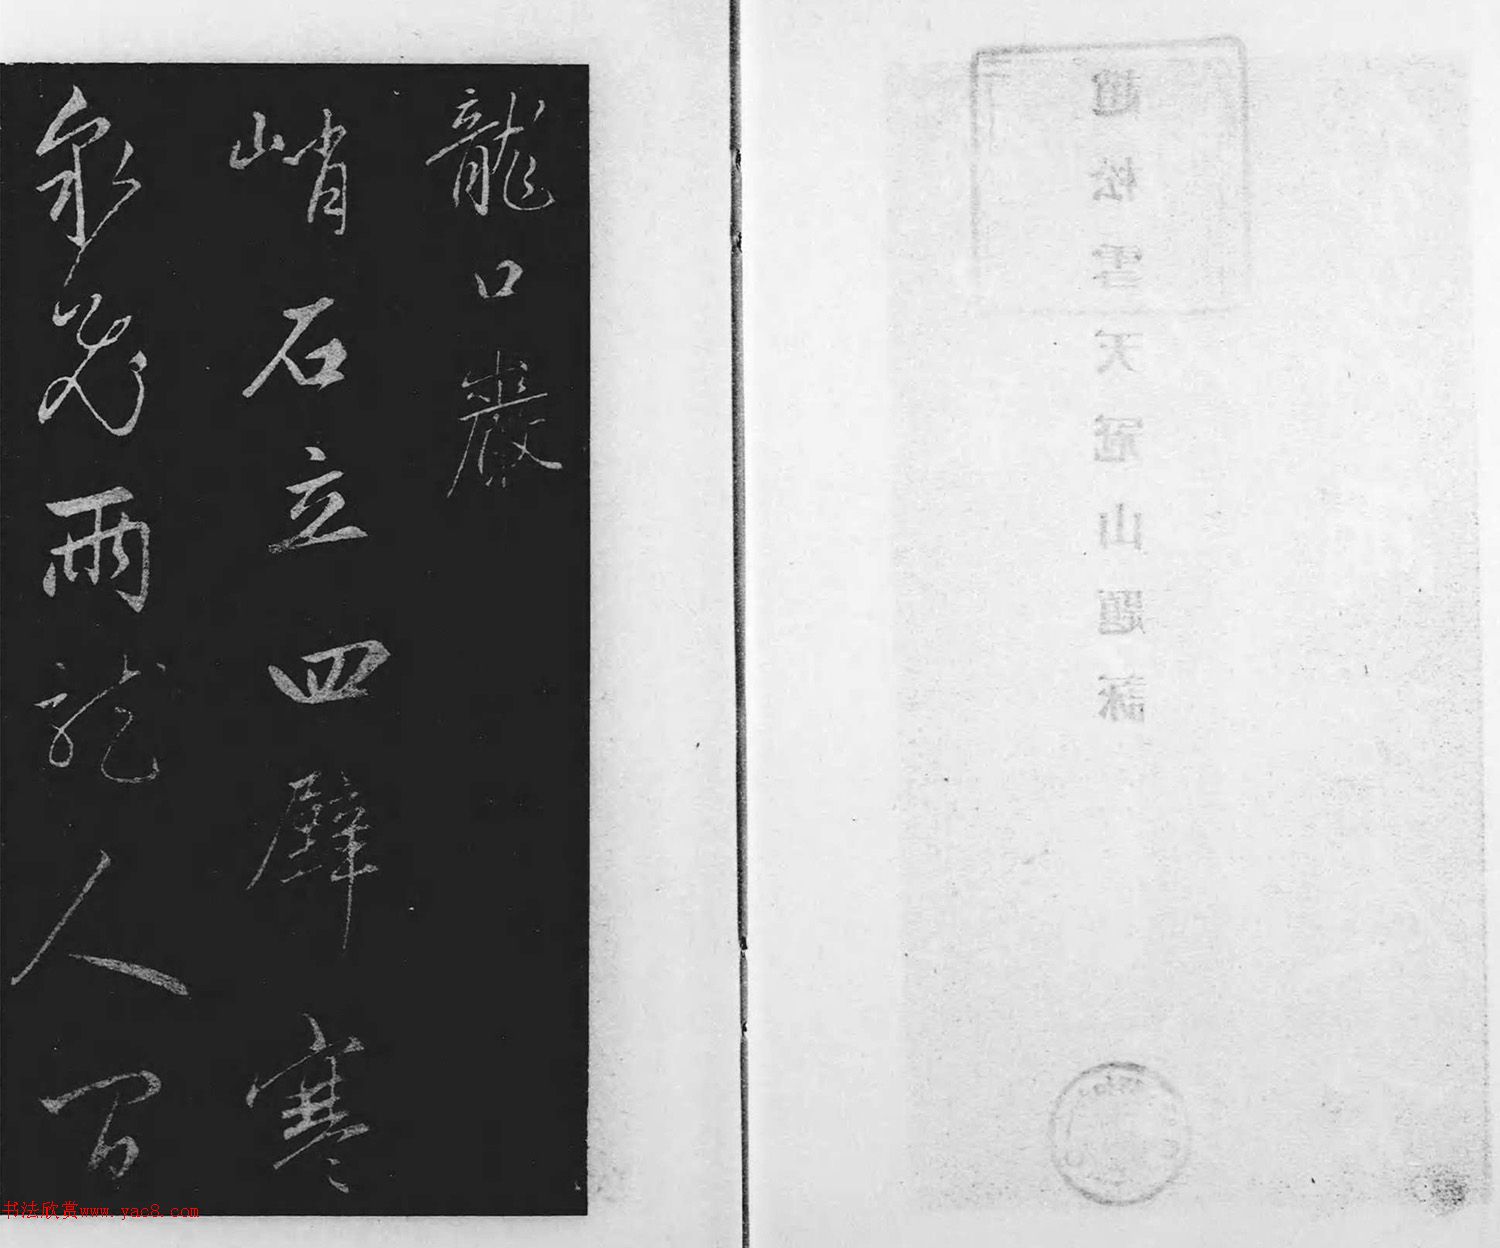 趙松雪天冠山題詠
龍口巖
峭石立四壁寒
泉飛兩龍人間
书法欣赏www.yac8.com